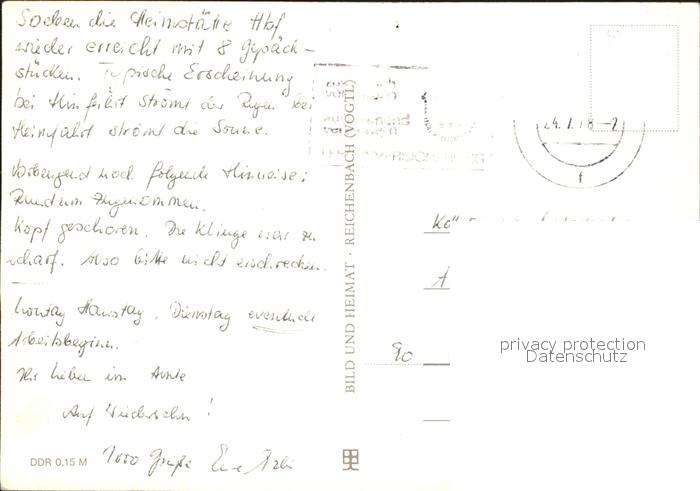 Soeben die Heimstätte Hbf
wieder erreicht mit 8 Gepäck-
stücken. Typische Erscheinung
bei Hinfahrt strömt der Regen bei
Heimfahrt strömt die Sonne.
Vorbeugend noch folgende Hinweise:
Rundum zugenommen.
Kopf geschoren. Die Klinge war zu
scharf. Also bitte nicht erschrecken.
Montag Haustag, Dienstag eventuell
Arbeitsbeginn.
Ihr lieben im Amte
Auf Wiedersehn!
1000 Grüße Eure
DDR 0,15 M
BILD UND HEIMAT · REICHENBACH (VOGTL)
90
privacy protection
Datenschutz